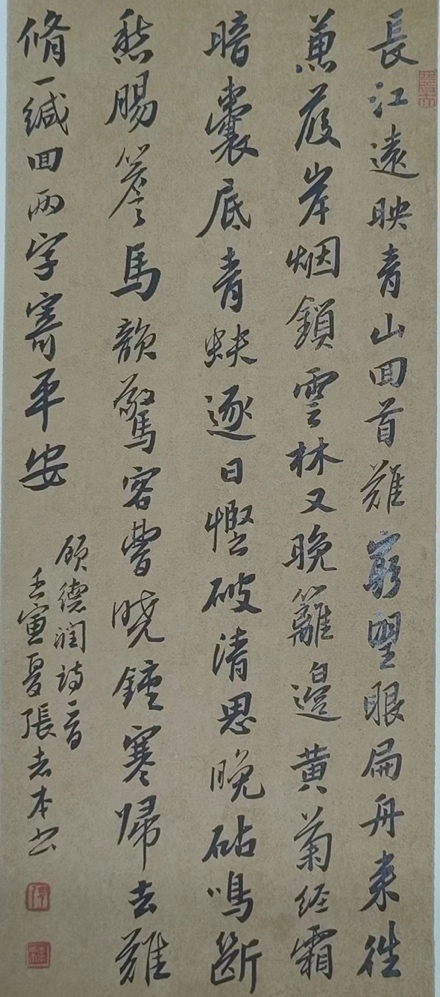 長江遠映青山回首難窮望眼扁舟来往
蒹葭岸烟鎖雲林又晚籬邊黄菊经霜
暗囊底青蚨逐日慳破清思晚砧鳴斷
愁腸簷馬韻驚客夢曉鐘寒歸去難
脩一缄回两字寄平安
顾德润詩一首
壬寅夏張志本书